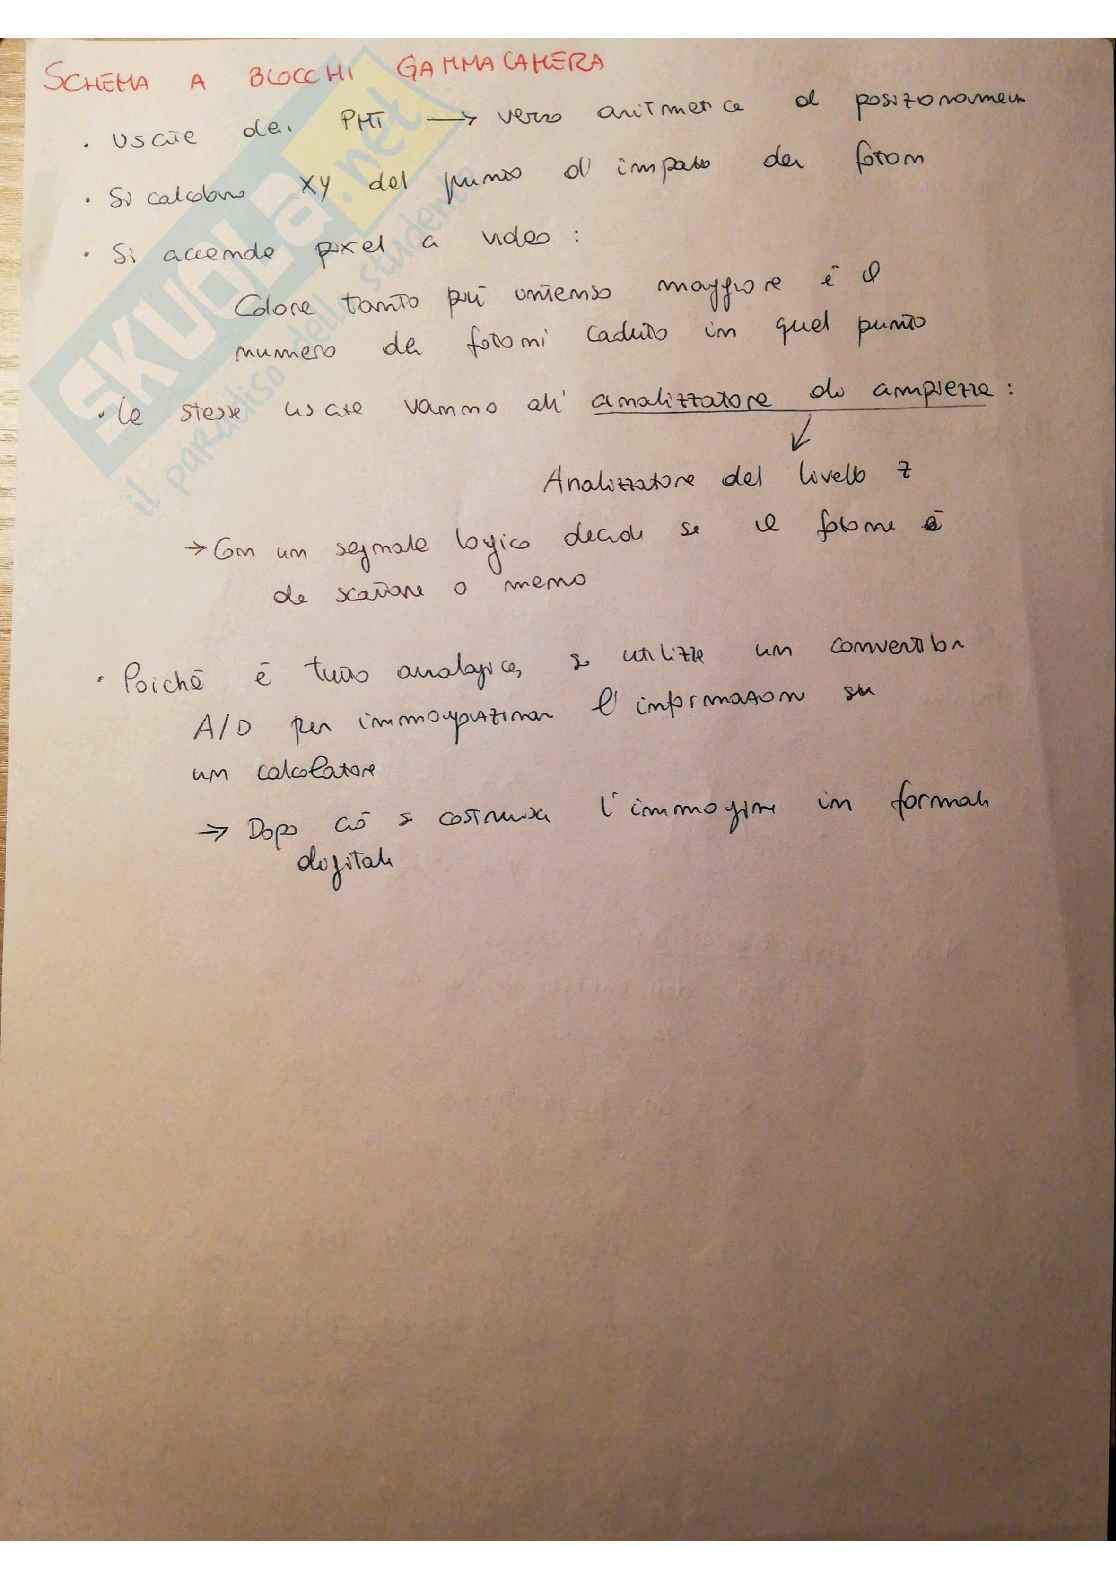 SCHEMA A BLOCCHI GAMMACAMERA
· Uscite dei PMT → verso aritmetica di posizionamen
· Si calcolano XY del punto d'impatto dei fotoni
· Si accende pixel a video :
Colore tanto più intenso maggiore è il
numero dei fotoni caduto in quel punto
· Le stesse uscite vanno all'analizzatore di ampiezze :
Analizzatore del livello z
→ Con un segnale logico decide se il fotone è
da scartare o meno
· Poiché è tutto analogico, si utilizza un convertitore
A/D per immagazzinare l'informazione su
un calcolatore
→ Dopo ciò si costruisce l'immagine in formato
digitale
SKUOLA.net
il paradiso dello studente